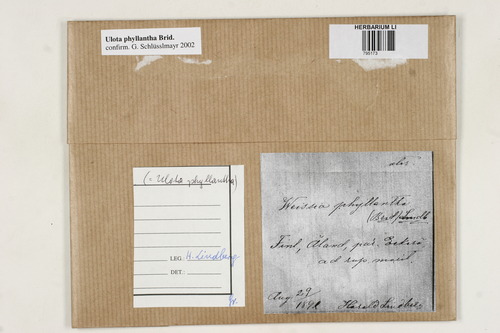 Ulota phyllantha Brid.
confirm. G. Schlüsslmayr 2002
HERBARIUM LI
(= Ulota phyllantha)
LEG. H. Lindberg
DET.:
Weissia phyllantha
Finl, Åland, par. Eckerö
ad rup. marit.
Aug. 29
Harald Lindberg